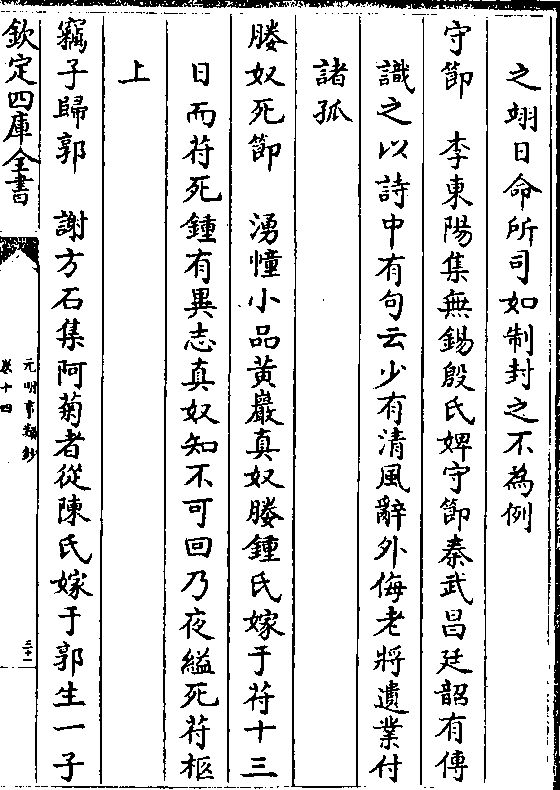 之翊日命所司如制封之不為例
守節　李東陽集無錫殷氏婢守節秦武昌廷韶有傳
識之以詩中有句云少有清風辭外侮老將遺業付
諸孤
媵奴死節　湧幢小品黃巖真奴媵鍾氏嫁于苻十三
日而苻死鍾有異志真奴知不可回乃夜縊死苻柩
上
竊子歸郭　謝方石集阿菊者從陳氏嫁于郭生一子
欽定四庫全書
元明事類鈔
卷十四
三十二